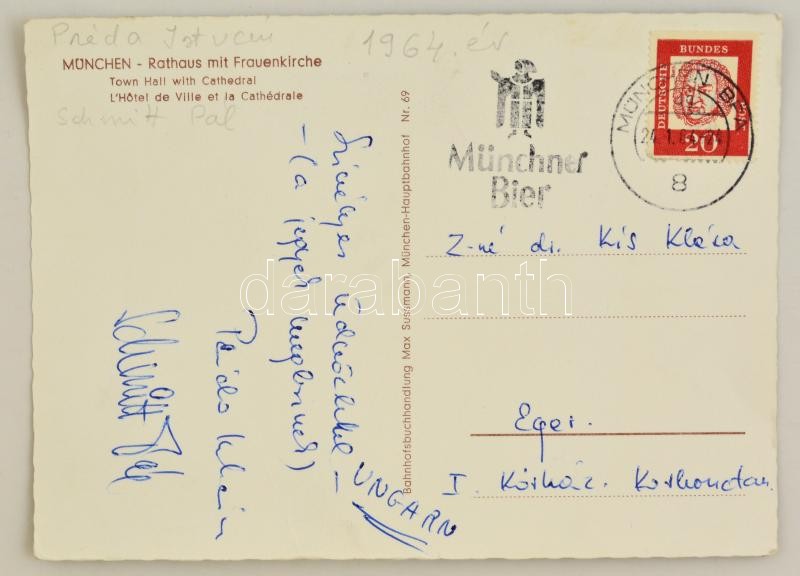 Préda István
1964. év
MÜNCHEN - Rathaus mit Frauenkirche
Town Hall with Cathedral
L'Hôtel de Ville et la Cathédrale
Schmitt Pál
Szívélyes üdvözlettel -
- (a jegyek megvannak)
Schmitt Pál
UNGARN
Bahnhofsbuchhandlung Max Sussmann, München-Hauptbahnhof Nr. 69
Münchner
Bier
DEUTSCHE BUNDESPOST
20
MÜNCHEN BPA
8
Z-né dr. Kis Klára
Eger.
I. Kórház.
darabanth